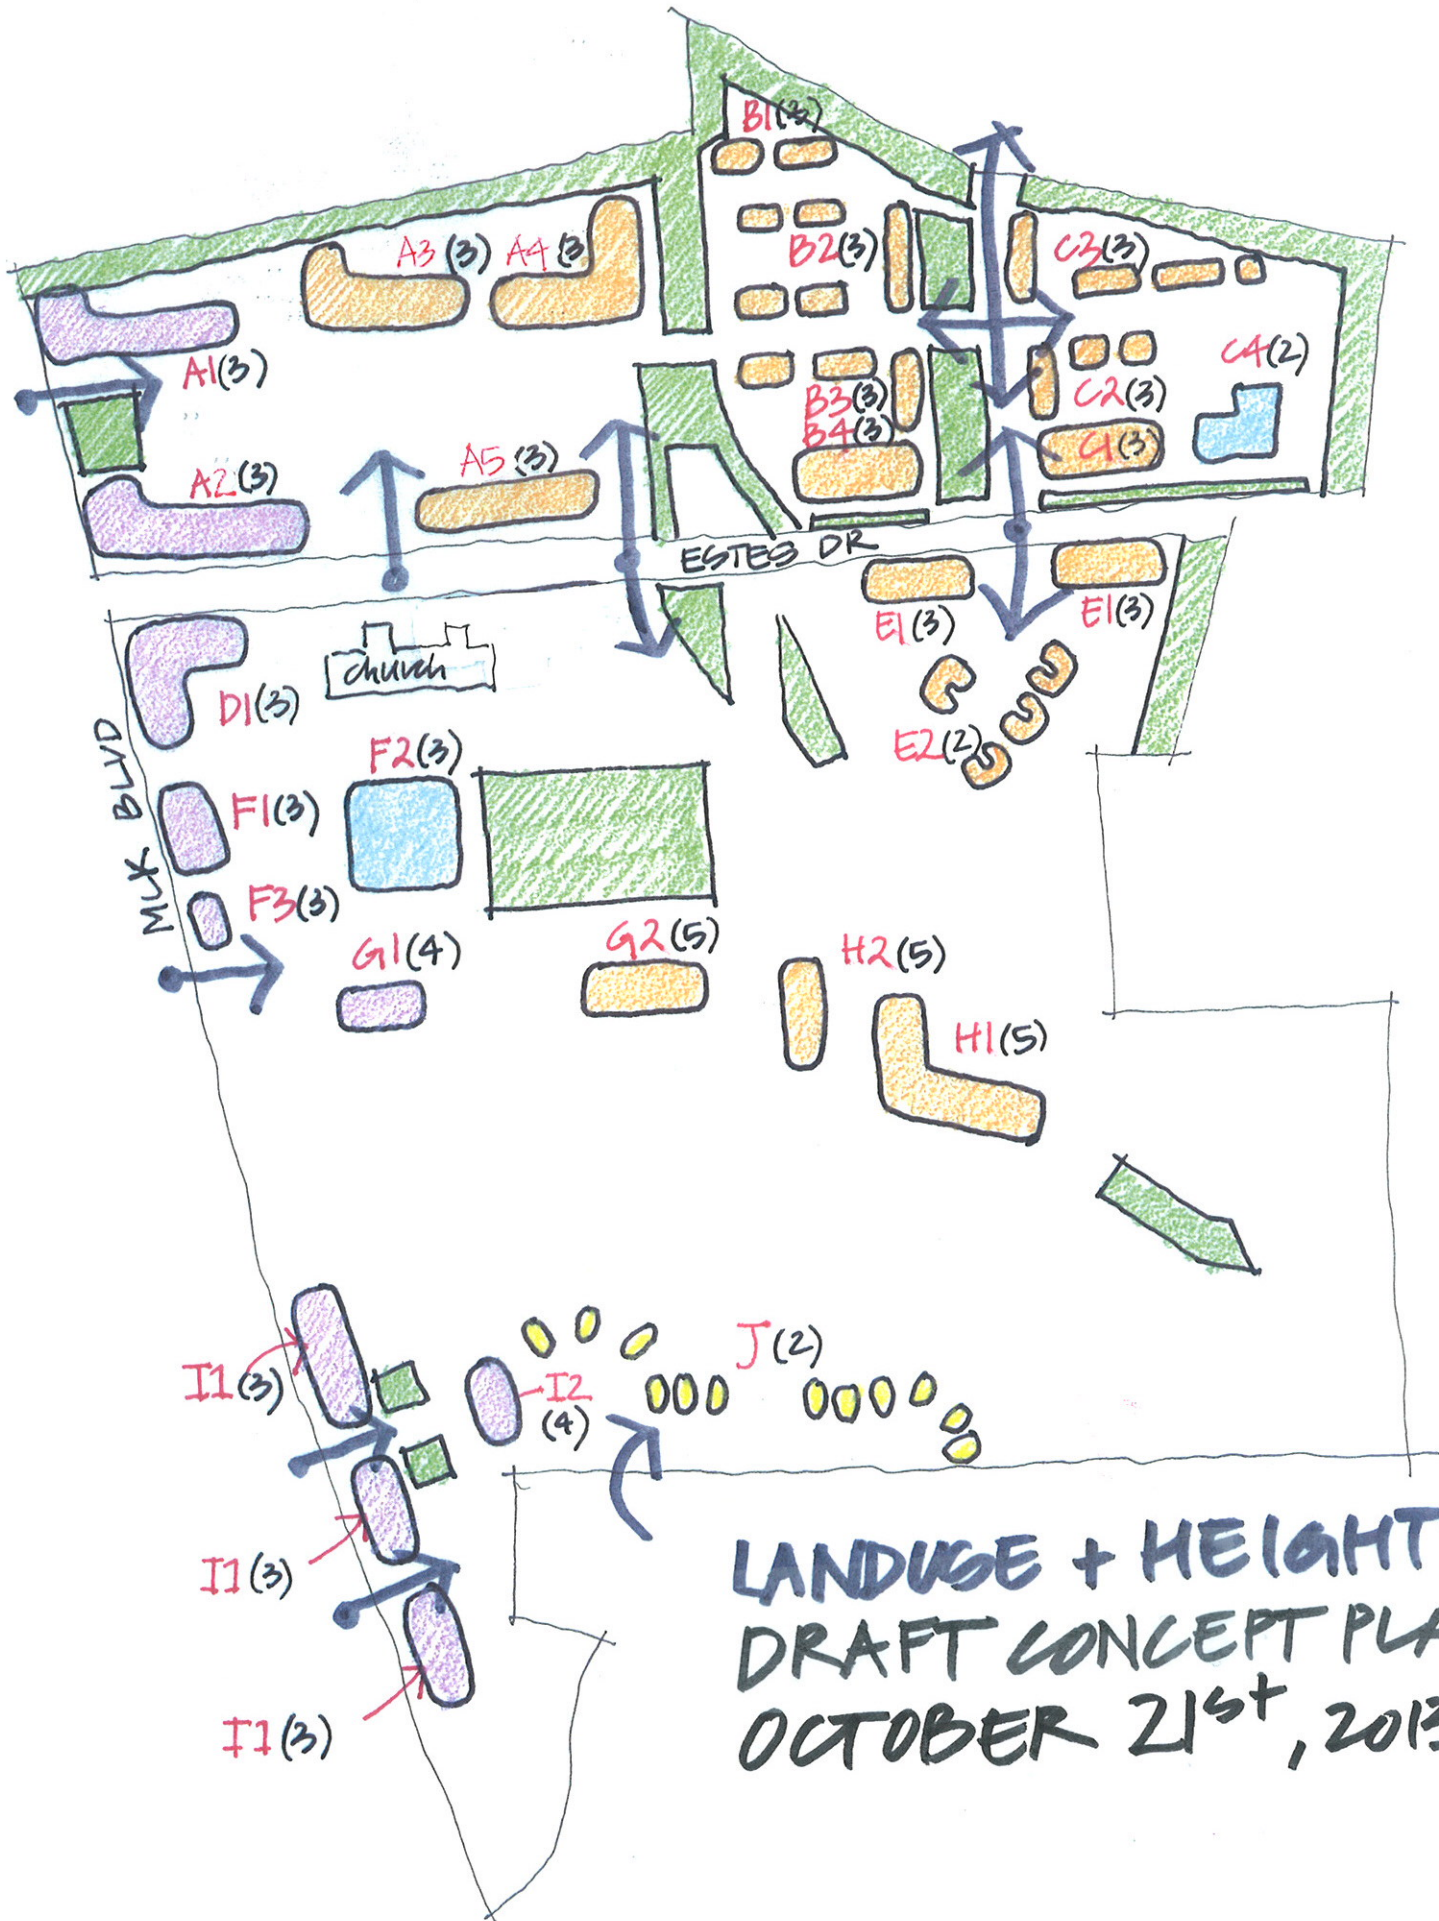 B1(3)
A3(3)
A4(3
B2(3)
C3(3)
A1(3)
C4(2)
B3(3)
C2(3)
B4(3)
C1(3)
A5(3)
A2(3)
ESTES DR
E1(3)
E1(3)
church
D1(3)
MLK BLVD
F2(3)
E2(2)
F1(3)
F3(3)
G1(4)
G2(5)
H2(5)
H1(5)
I1(3)
I2
(4)
J(2)
I1(3)
I1(3)
LANDUSE + HEIGHT
DRAFT CONCEPT PLA
OCTOBER 21st, 2013